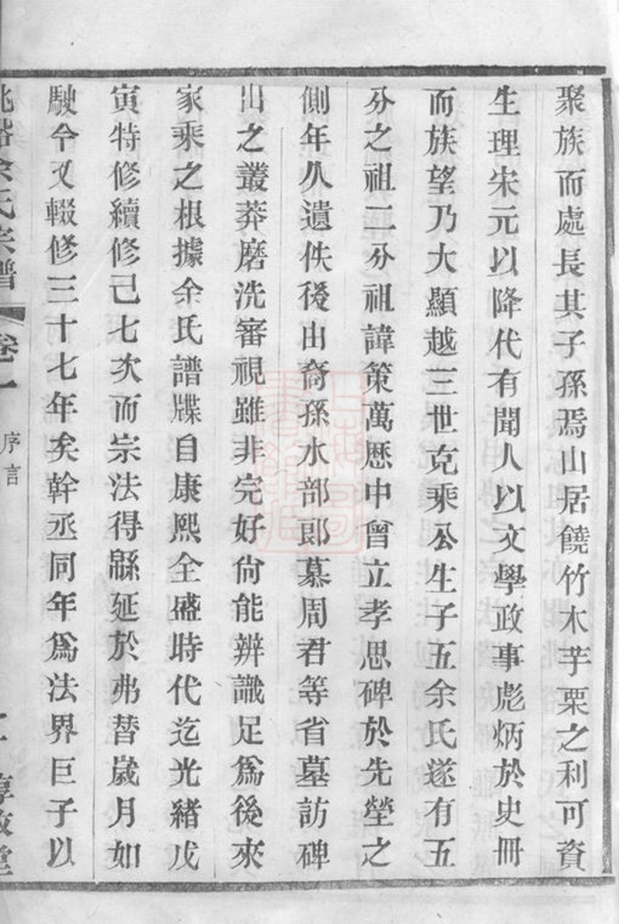 聚族而處長其子孫焉山居饒竹木芋栗之利可資
生理宋元以降代有聞人以文學政事彪炳於史冊
而族望乃大顯越三世克乘公生子五余氏遂有五
分之祖二分祖諱策萬歷中曾立孝思碑於先塋之
側年久遺佚後出裔孫水部郎慕周君等省墓訪碑
出之叢莽磨洗審視雖非完好尙能辨識足爲後來
家乘之根據余氏譜牒自康熙全盛時代迄光緒戊
寅特修續修已七次而宗法得緜延於弗替歲月如
駛今又輟修三十七年矣幹丞同年爲法界巨子以
余氏宗譜
卷一
序言